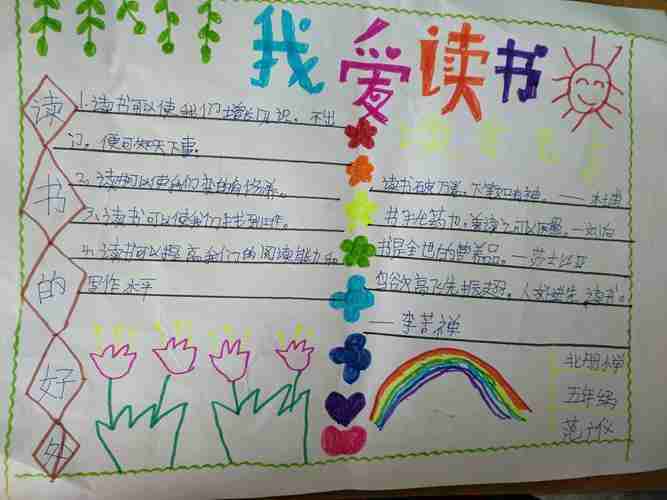 我爱读书
读书的好处
1.读书可以使我们增长知识。不出
门,便可知天下事。
2.读书可以使我们变的有修养。
3.读书可以使我们找到工作。
4.读书可以提高我们的阅读能力和
写作水平
读书破万卷,下笔如有神。——杜甫
书犹药也,善读之可以医愚。—刘向
书是全世界的营养品。—莎士比亚
鸟欲高飞先振翅,人求上进先读书。
——李苦禅
小学
五年级